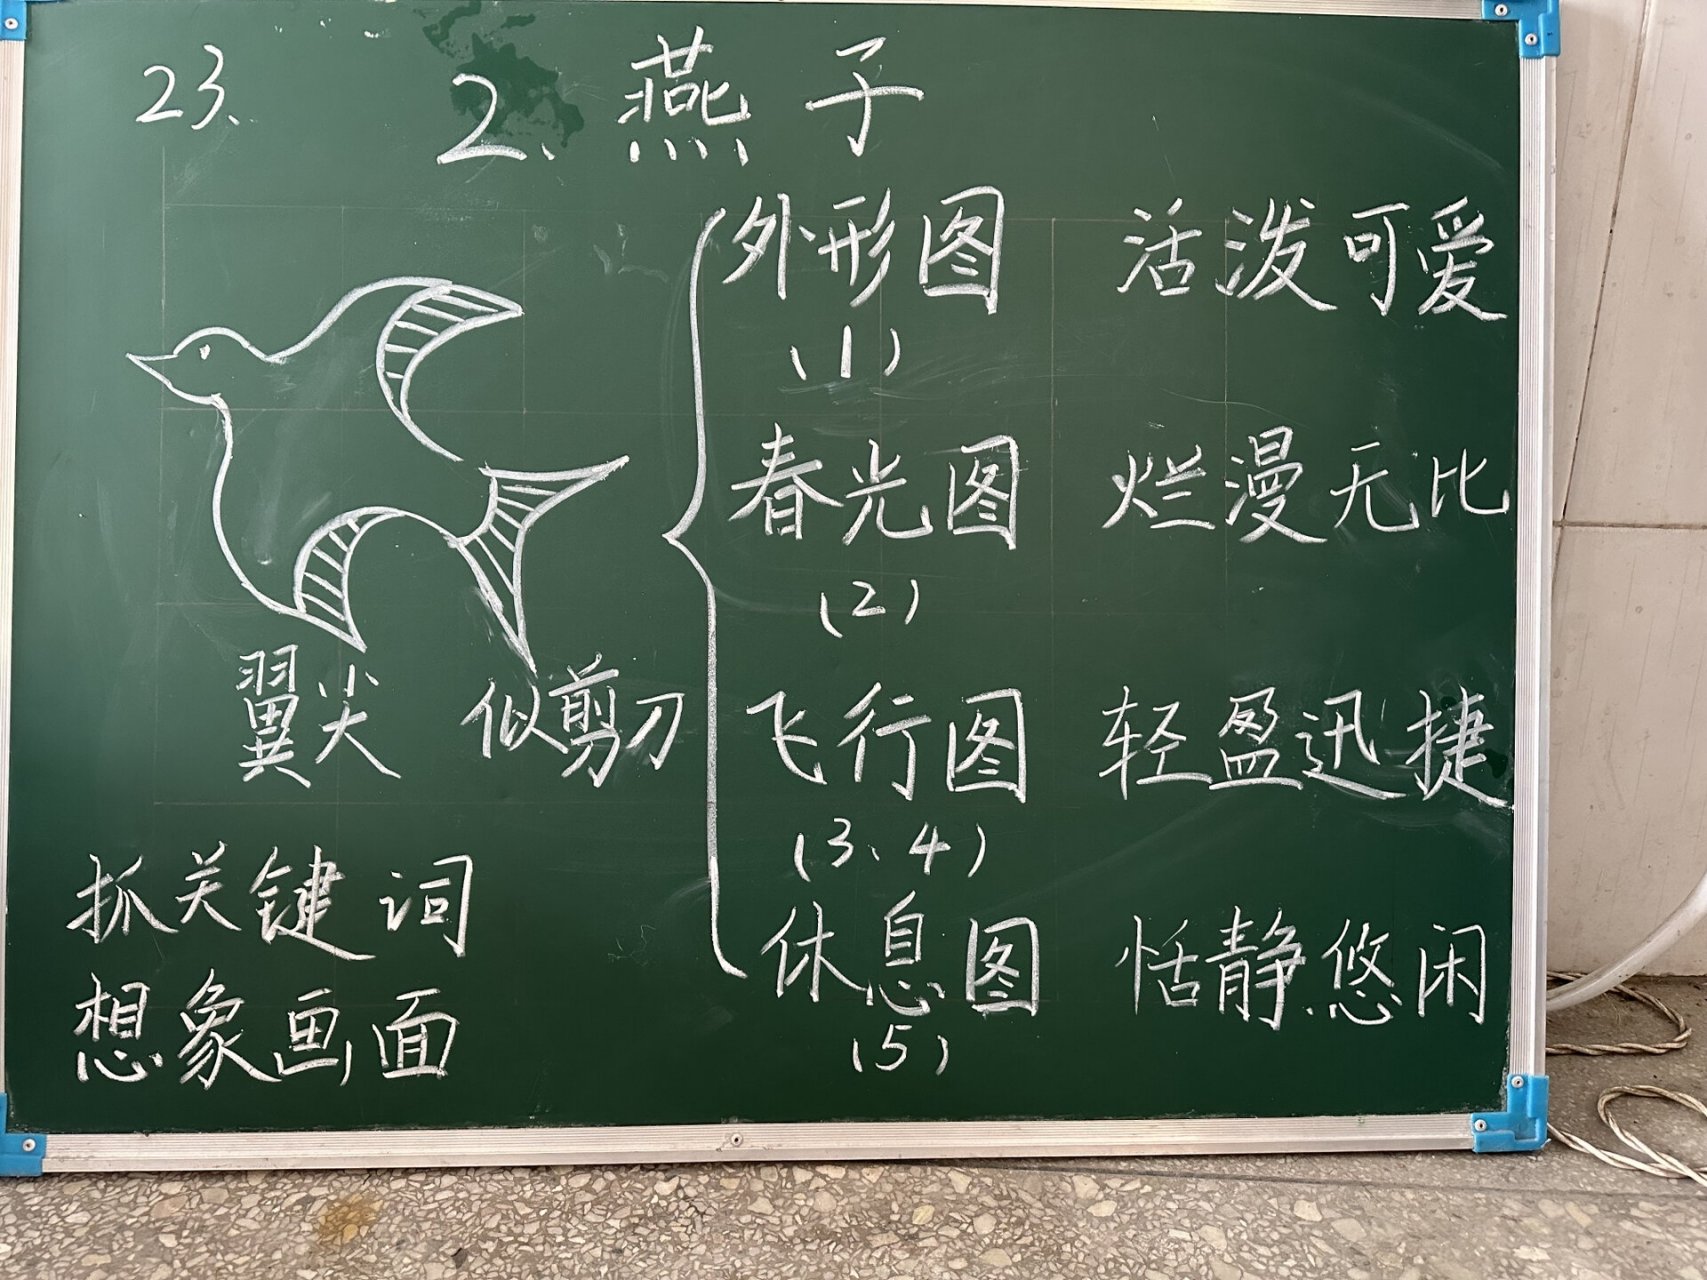 23、
2、燕子
外形图 活泼可爱
(1)
春光图 烂漫无比
(2)
翼尖 似剪刀
飞行图 轻盈迅捷
(3、4)
抓关键词
想象画面
休息图 恬静悠闲
(5)